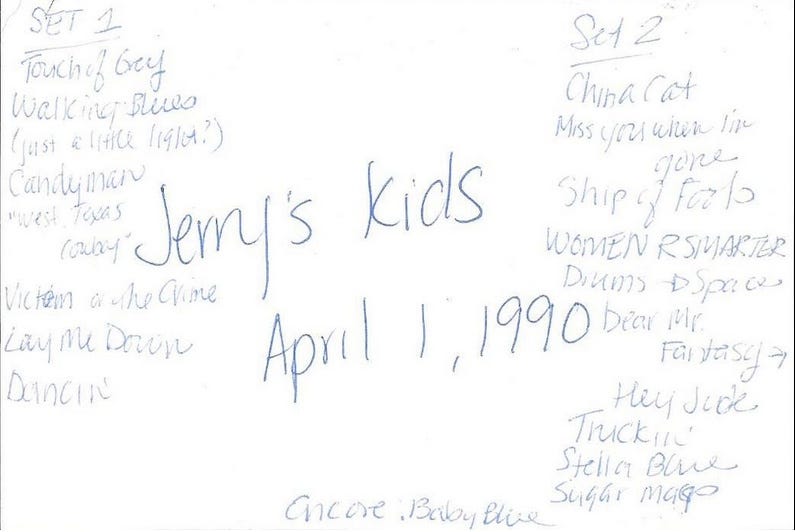 SET 1
Touch of Grey
Walking Blues
(just a little light?)
Candyman
"West Texas
Cowboy"
Victim or the Crime
Lay Me Down
Dancin'
Jerry's Kids
April 1, 1990
Set 2
China Cat
Miss you when I'm
gone
Ship of Fools
WOMEN R SMARTER
Drums → Space
Dear Mr.
Fantasy →
Hey Jude
Truckin'
Stella Blue
Sugar mags
Encore: Baby Blue